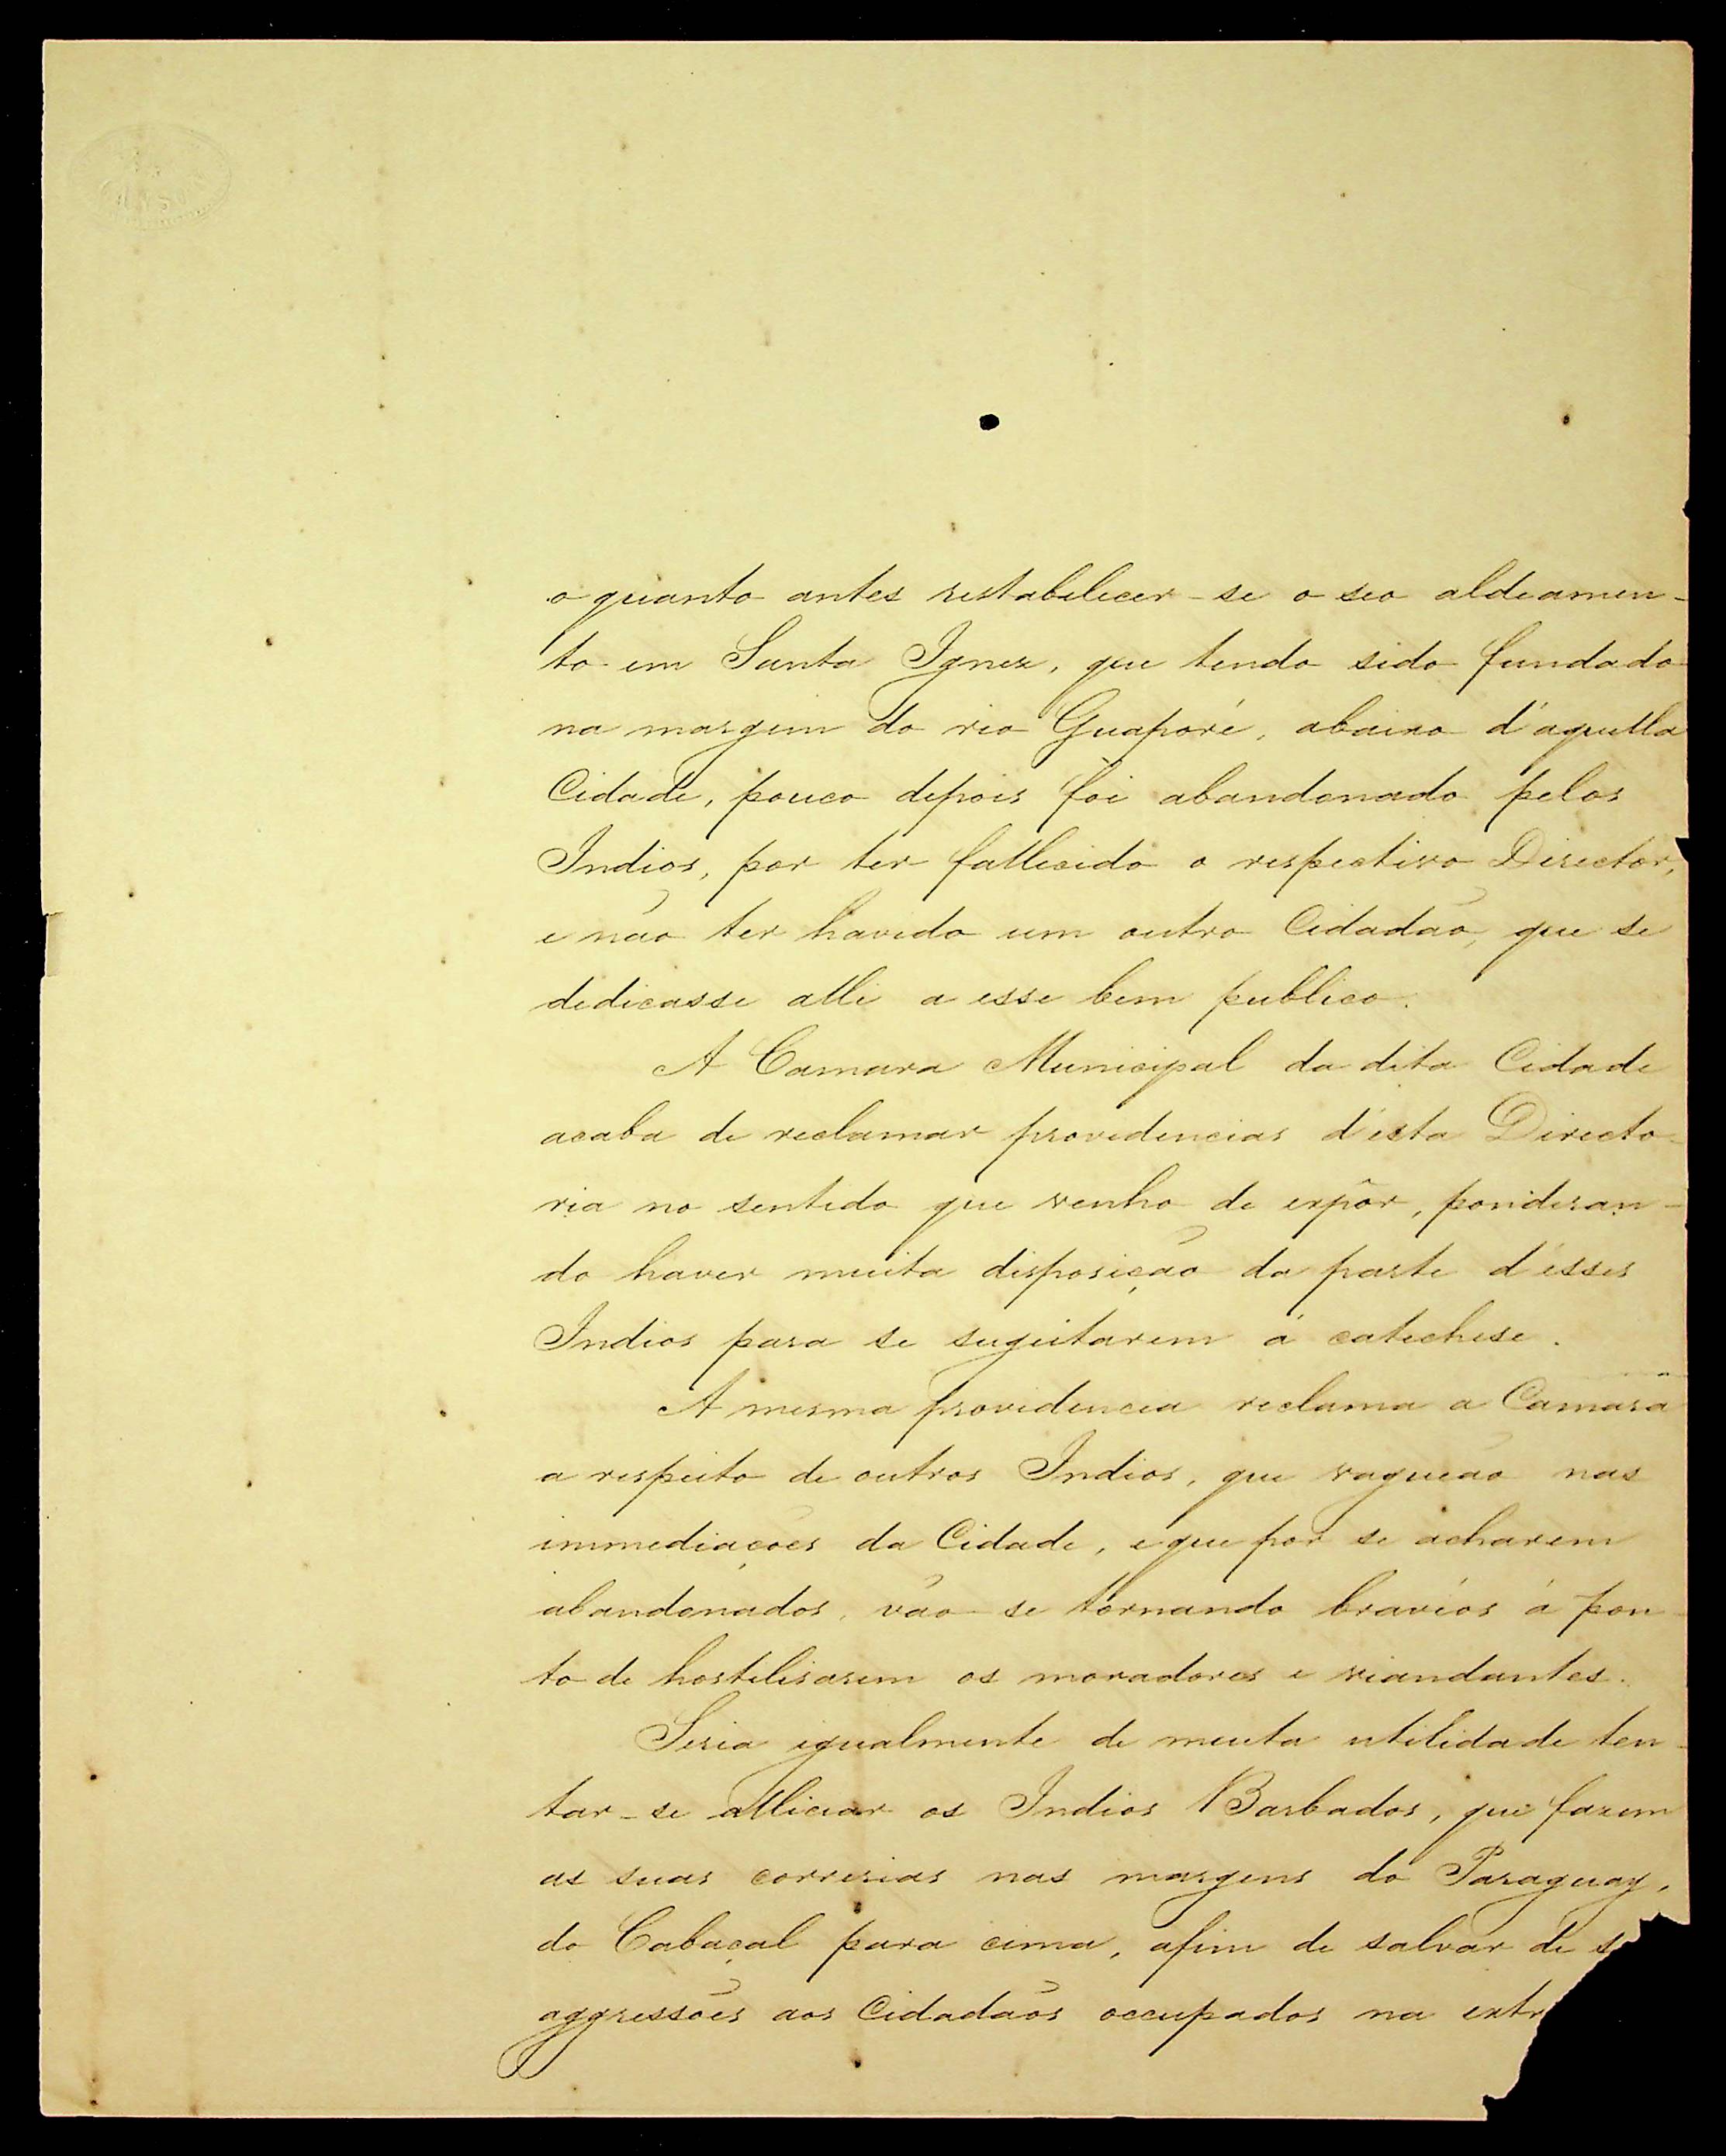 o quanto antes restabelecer-se o seo aldeamen-
to em Santa Ignez, que tendo sido fundado
na margem do rio Guaporé, abaixo d'aquella
Cidade, pouco depois foi abandonado pelos
Indios, por ter fallecido o respectivo Director,
e não ter havido um outro Cidadão, que se
dedicasse alli a esse bem publico.
A Camara Municipal da dita Cidade
acaba de reclamar providencias d'esta Directo-
ria no sentido que venho de expôr, ponderan-
do haver muita disposição da parte d'esses
Indios para se sugeitarem á catechese.
A mesma providencia reclama a Camara
a respeito de outros Indios, que vagueão nas
immediações da Cidade, e que por se acharem
abandonados, vão-se tornando bravios á pon-
to de hostilisarem os moradores e viandantes.
Seria igualmente de muita utilidade ten-
tar-se alliciar os Indios Barbados, que fazem
as suas correrias nas margens do Paraguay,
do Cabaçal para cima, afim de salvar de s
aggressões aos Cidadãos occupados na extr